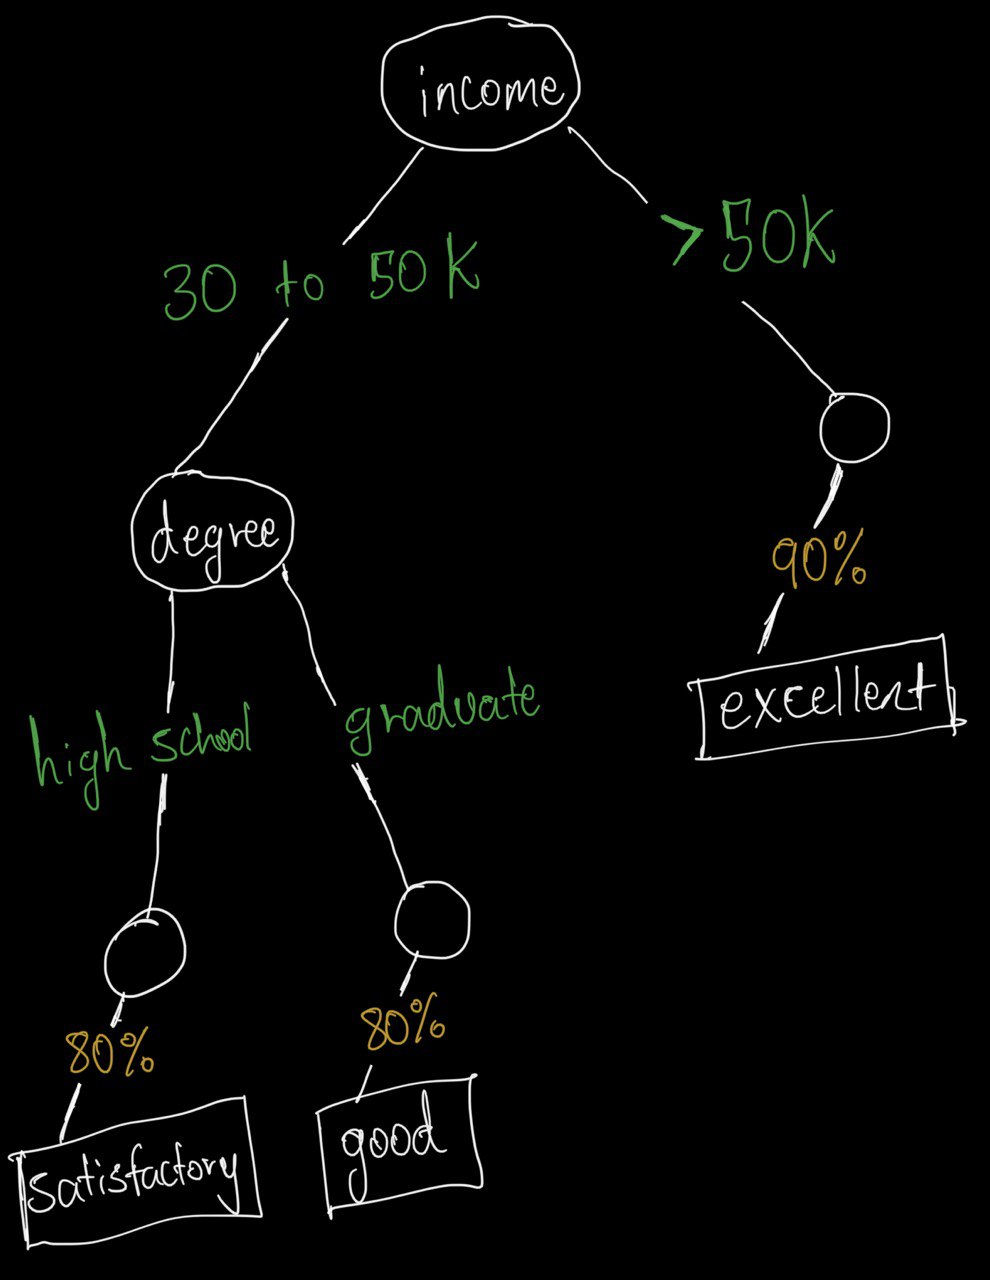 income
30 to 50K
> 50K
degree
90%
excellent
high school
graduate
80%
80%
satisfactory
good